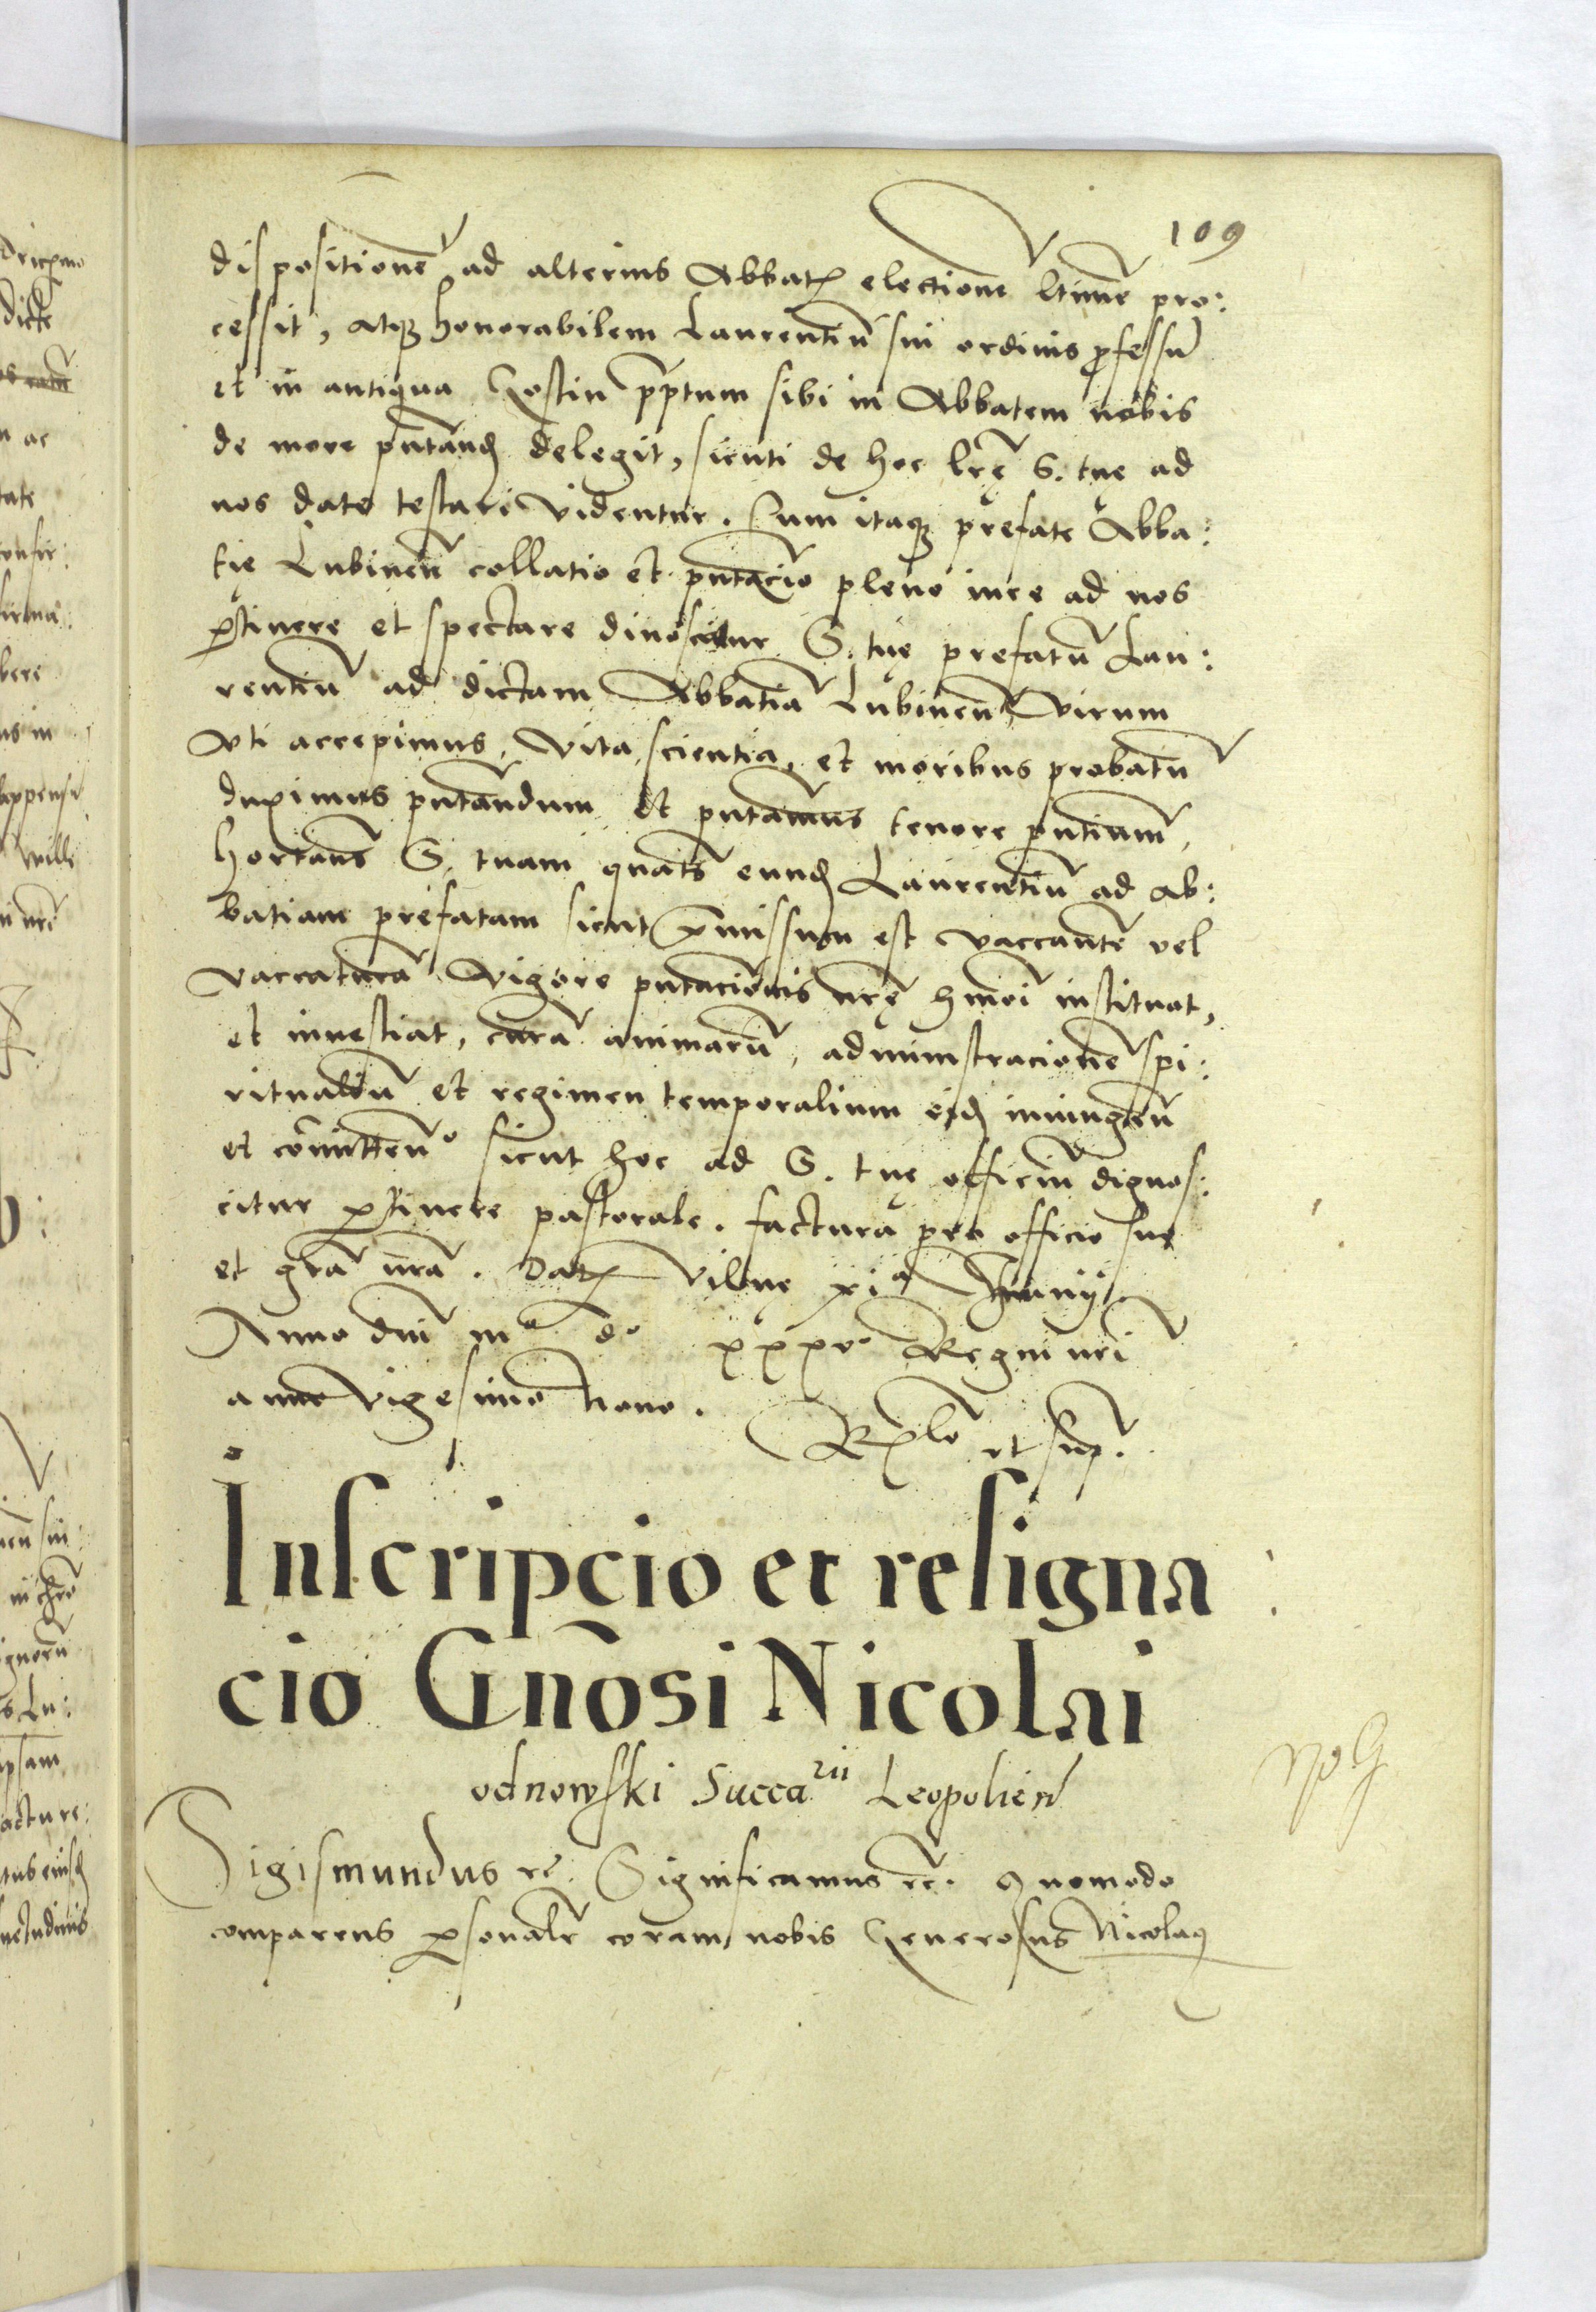 109
dispositionẽ ad alterius Abbatꝭ electionem ltimẽ pro:
cessit, atqꝫ honorabilem Laurentiũ sui ordinis ꝓfessũ
et in antiqua Gostin p̃ptum sibi in Abbatem nobis
de more pñtandꝭ delegit, sicuti de hoc lrẽ S. tuę ad
nos date testari videntur. Cum itaqꝫ prefate Abba:
tię Lubineñ collatio et pñtacio pleno iure ad nos
ꝑtinere et spectare dinoscitur S. tuę prefatũ Lau:
rentiũ ad dictam Abbatiã Lubineñ, virum
vti accepimus, vita scientia, et moribus probatũ
duximus pñtandum et pñtamus tenore pñtium,
hortañs S. tuam quateñs eundꝭ Laurentiũ ad ab:
batiam prefatam sicut p̃missum est vaccantẽ vel
vaccaturã vigore pñtacionis nrę hmõi instituat,
et inuestiat, curã animarũ, administracionẽ spi:
ritualiũ et regimen temporalium eidꝭ iniungeñ
et cõmitteñ sicut hoc ad S. tuę officiũ dignos:
citur ꝑtinere pastorale. factura pro officio suo
et grã nrã. Datꝭ Vilnę xiª Junij
Anno dñi mº dº xxxvº Regni nri
anno vigesimo nono.
Rlõ ut supꝭ.
Inscripcio et resigna
cio Gñosi Nicolai
odnowski Succa rii Leopolieñ
Sigismundus rc̃. Significamus rc̃. Quomodo
comparens ꝑsonalr̃ coram nobis Generosus Nicolaꝰ